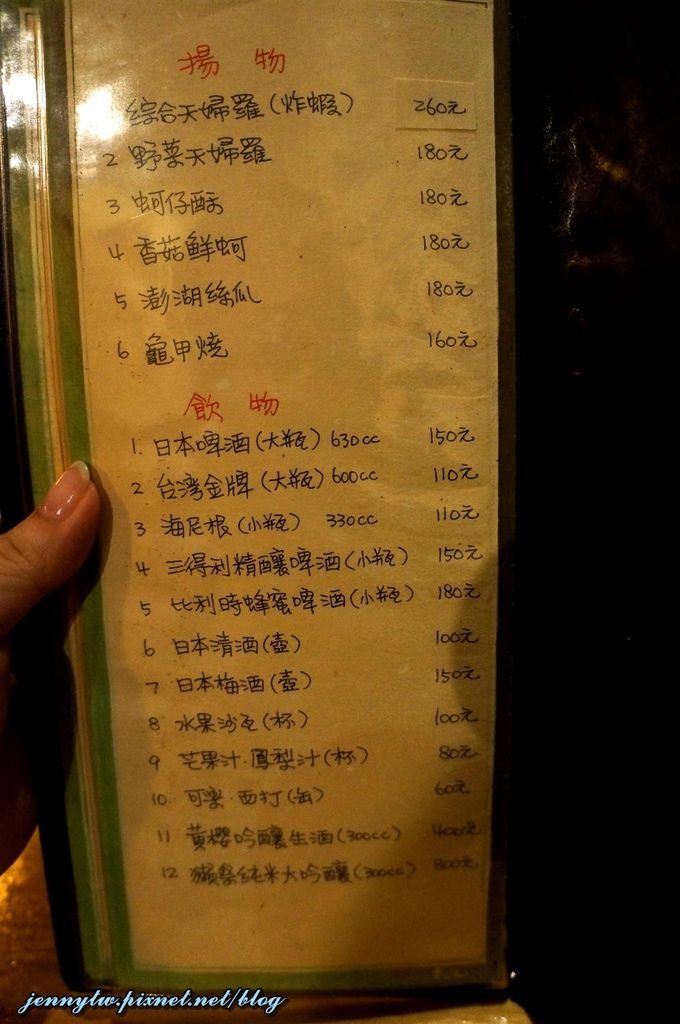 揚物
綜合天婦羅(炸蝦) 260元
2 野菜天婦羅 180元
3 蚵仔酥 180元
4 香菇鮮蚵 180元
5 澎湖絲瓜 180元
6 龜甲燒 160元
飲物
1. 日本啤酒(大瓶) 630cc 150元
2 台灣金牌(大瓶) 600cc 110元
3 海尼根(小瓶) 330cc 110元
4 三得利精釀啤酒(小瓶) 150元
5 比利時蜂蜜啤酒(小瓶) 180元
6 日本清酒(壺) 100元
7 日本梅酒(壺) 150元
8 水果沙瓦(杯) 100元
9 芒果汁·鳳梨汁(杯) 80元
10 可樂·西打(缶) 60元
11 黃櫻吟釀生酒(300cc) 400元
12 獺祭純米大吟釀(300cc) 800元
jennytw.pixnet.net/blog